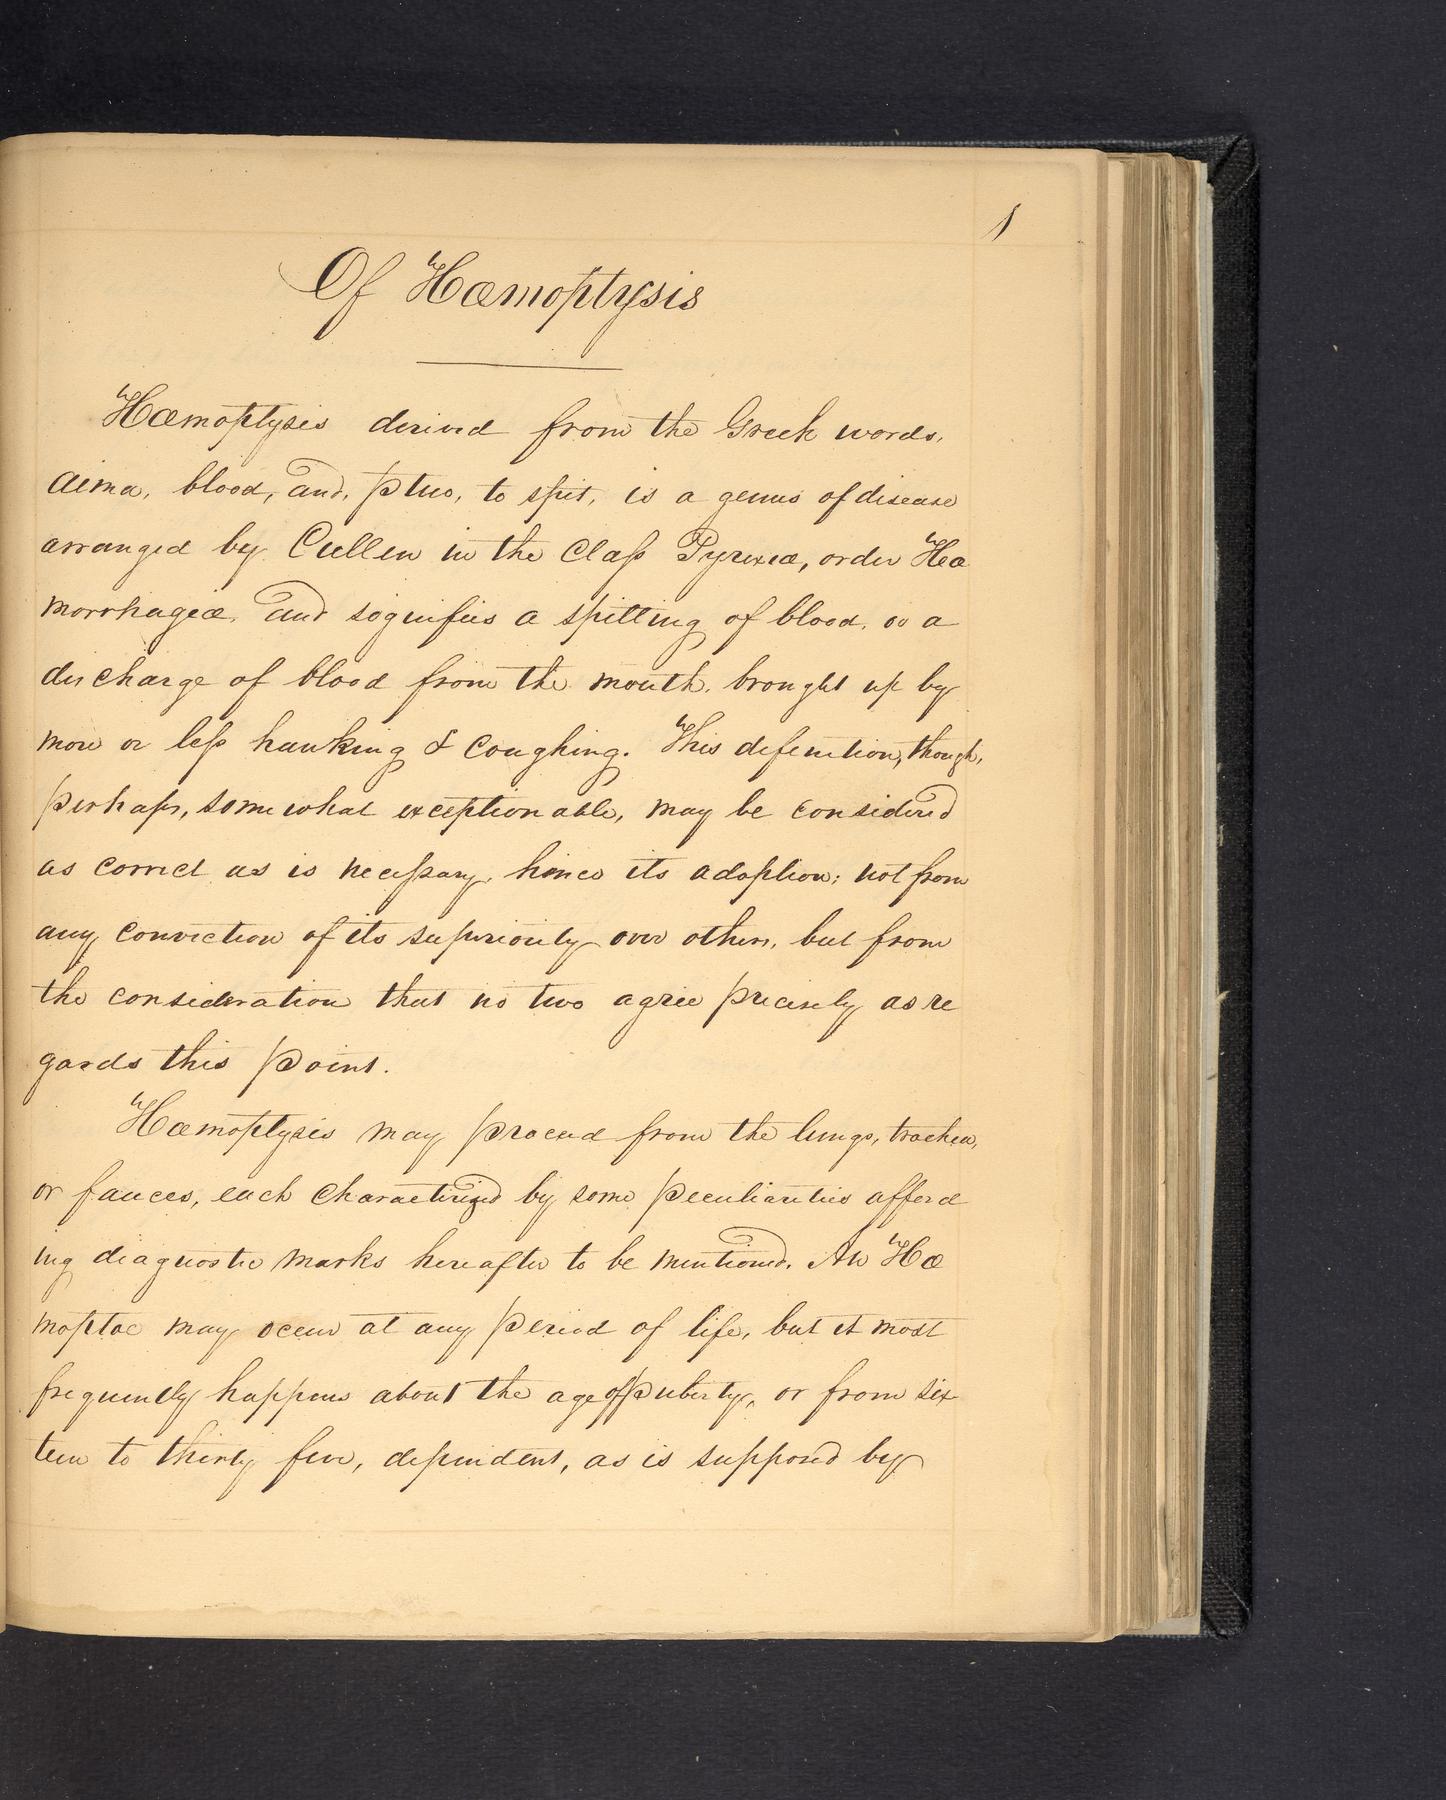 1
Of Hæmoptysis
Hæmoptysis derived from the Greek words,
aima, blood, and, ptuo, to spit, is a genus of disease
arranged by Cullen in the Class Pyrexiæ, order Hæ
morrhagiæ, and signifies a spitting of blood, or a
discharge of blood from the mouth, brought up by
more or less hawking & coughing. This defenition, though,
perhaps, somewhat exceptionable, may be considered
as correct as is necessary, hence its adoption; not from
any conviction of its superiority over others, but from
the consideration that no two agree precisely as re
gards this point.
Hæmoptysis may proceed from the lungs, trachea,
or fauces, each characterized by some peculiarities afford
ing diagnostic marks hereafter to be mentioned. An Hæ
moptoe may occur at any period of life, but it most
frequently happens about the age of puberty, or from six
teen to thirty five, dependent, as is supposed by